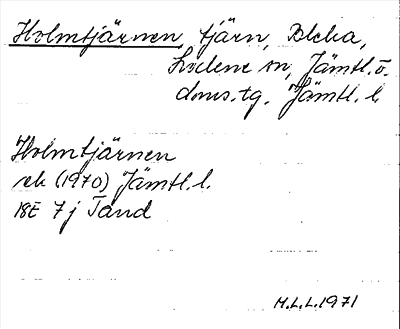 Holmtjärnen, tjärn, Bleka,
Kyrkene sn, Jämtl. ö.
doms.tg. Jämtl. l.
Holmtjärnen
ek (1970) Jämtl. l.
18E 7j Tand
H.L.L. 1971